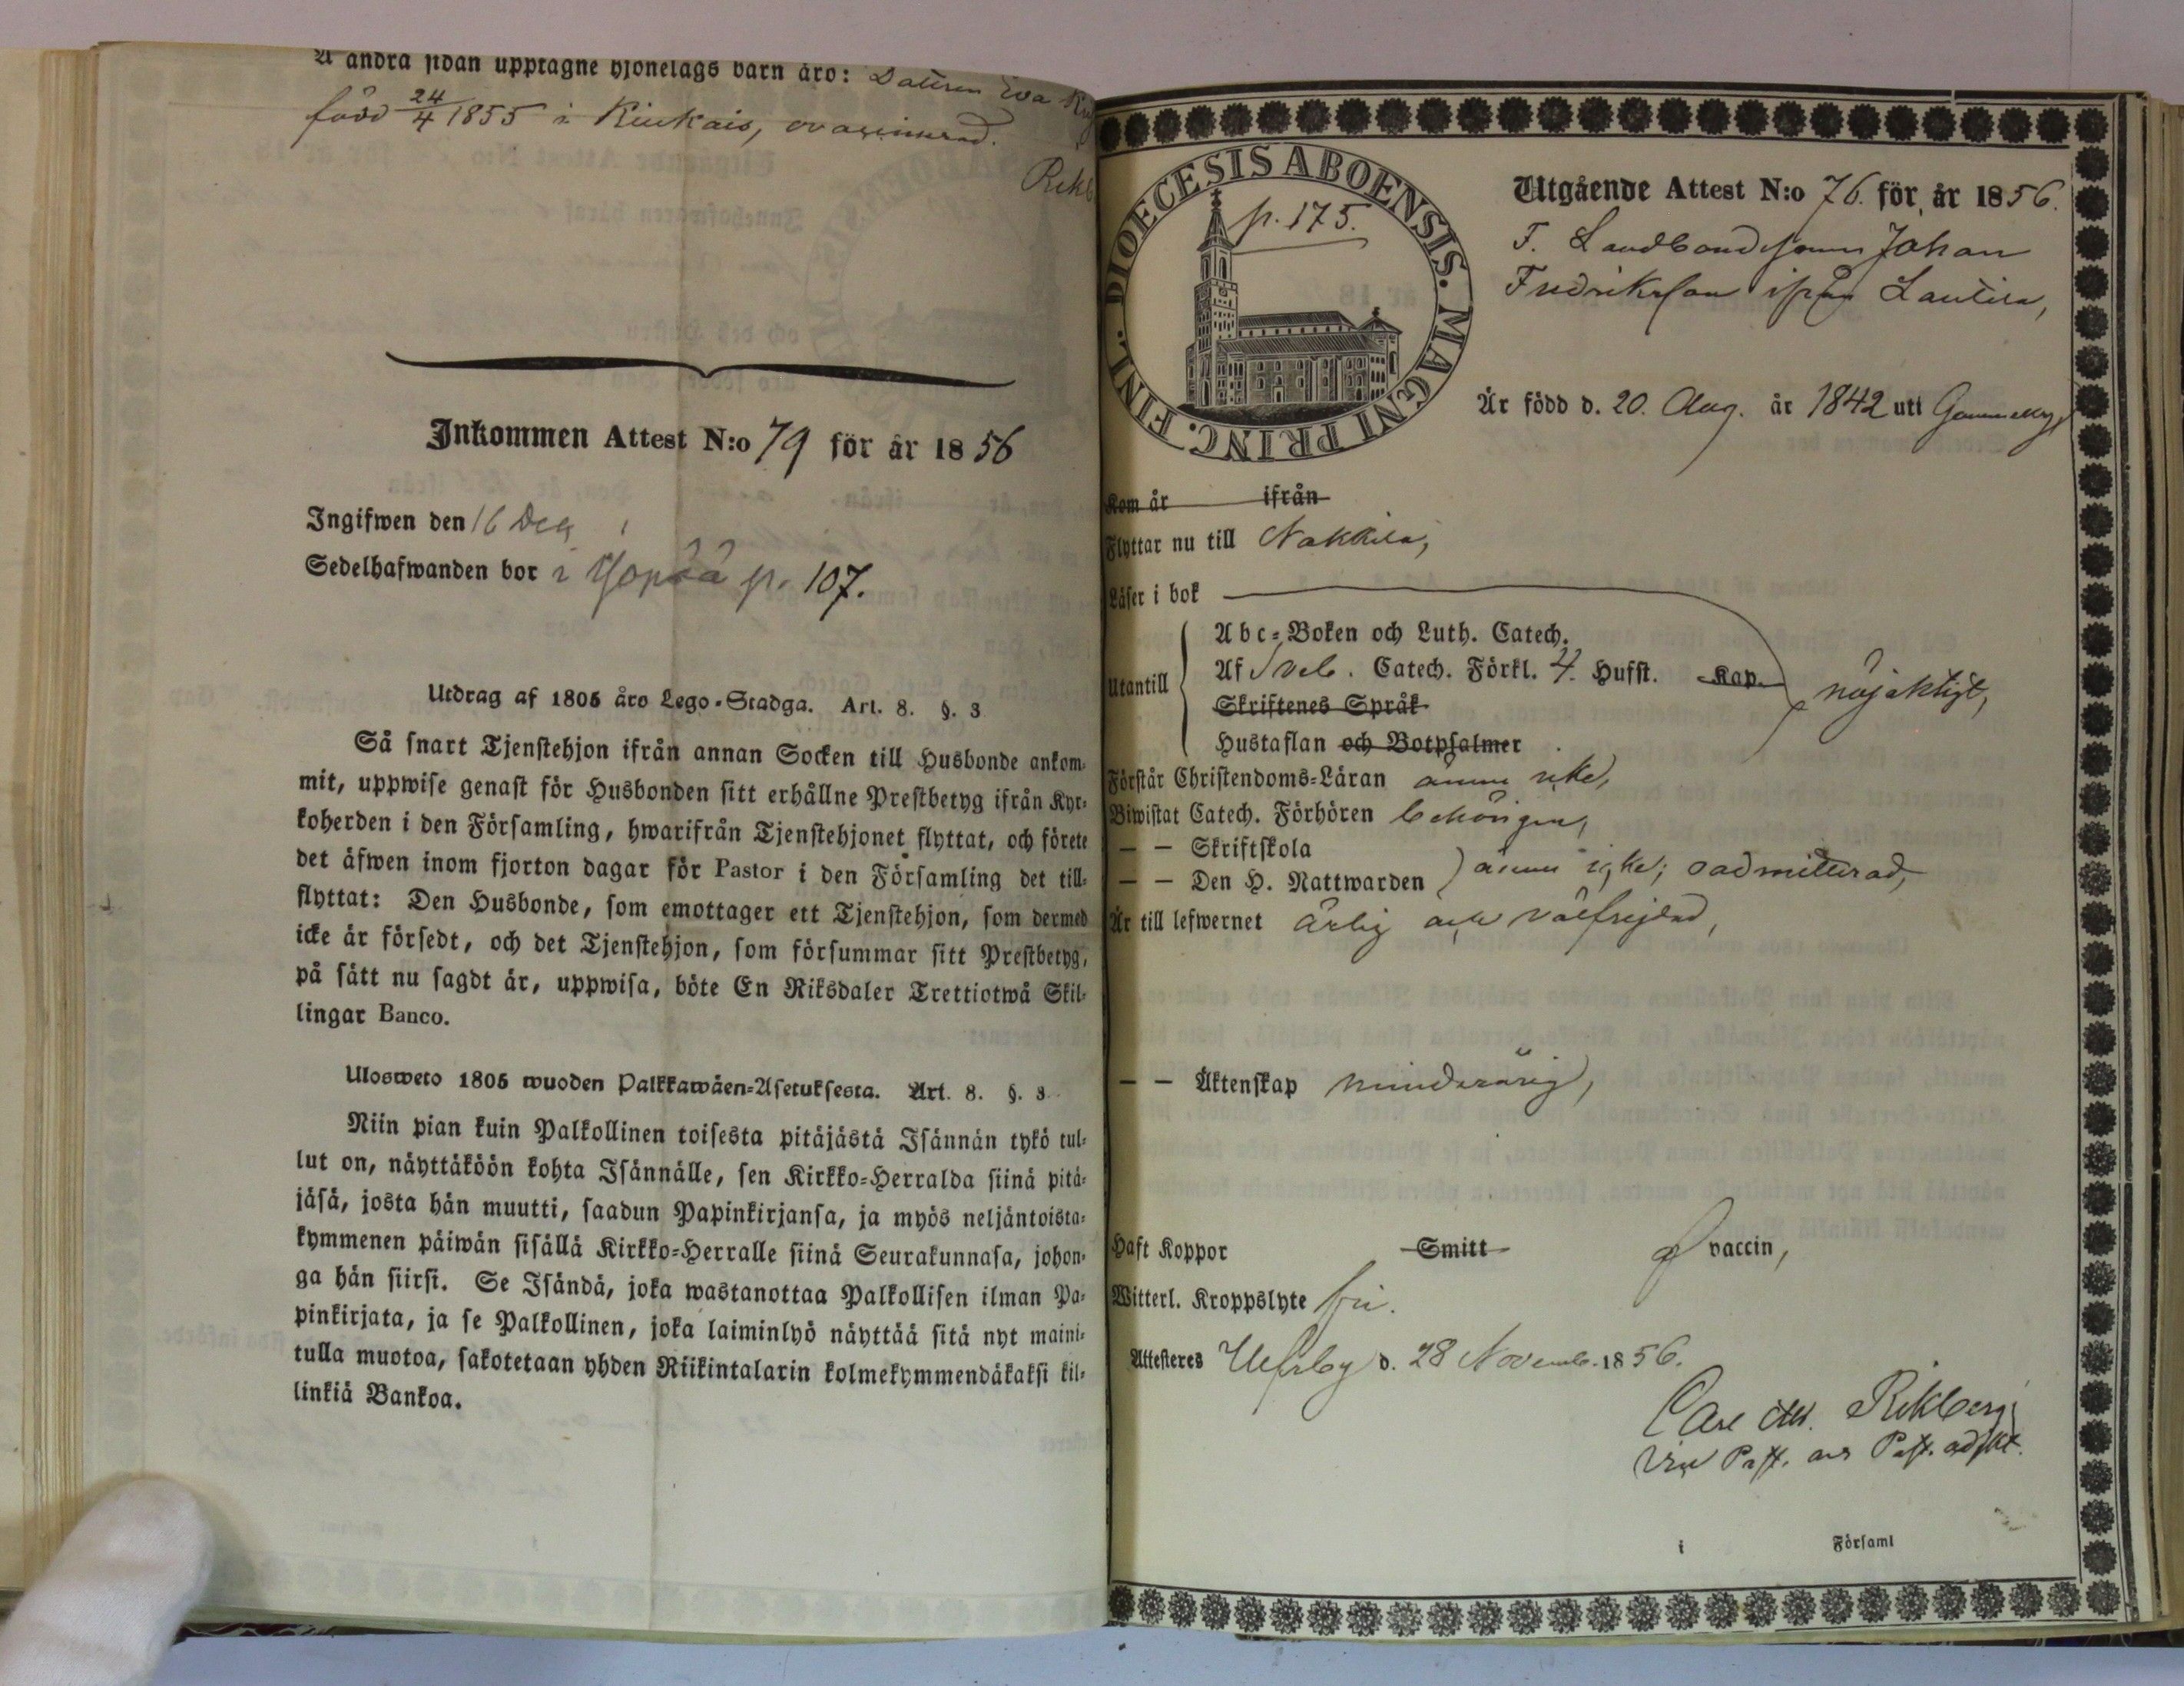 Å andra sidan upptagne hjonelags barn äro: Dottren Eva
född 24/4 1855 i Kiukais, ovaccinerad.
Inkommen Attest N:o 79 för år 1856
Ingifwen den 16 Dec
Sedelhafwanden bor i p. 107.
Utdrag af 1805 års Lego-Stadga. Art. 8. §. 3
Så snart Tjenstehjon ifrån annan Socken till Husbonde ankom-
mit, uppwise genast för Husbonden sitt erhållne Prestbetyg ifrån Kyr-
koherden i den Församling, hwarifrån Tjenstehjonet flyttat, och förete
det äfwen inom fjorton dagar för Pastor i den Församling det till-
flyttat: Den Husbonde, som emottager ett Tjenstehjon, som dermed
icke är försedt, och det Tjenstehjon, som försummar sitt Prestbetyg,
på sätt nu sagdt är, uppwisa, böte En Riksdaler Trettiotwå Skil-
lingar Banco.
Ulosweto 1805 wuoden Palkkawäen-Asetuksesta. Art. 8. §. 3
Niin pian kuin Palkollinen toisesta pitäjästä Isännän tykö tul-
lut on, näyttäköön kohta Isännälle, sen Kirkko-Herralda siinä pitä-
jäsä, josta hän muutti, saadun Papinkirjansa, ja myös neljäntoista-
kymmenen päiwän sisällä Kirkko-Herralle siinä Seurakunnasa, johon-
ga hän siirsi. Se Isändä, joka wastanottaa Palkollisen ilman Pa-
pinkirjata, ja se Palkollinen, joka laiminlyö näyttää sitä nyt maini-
tulla muotoa, sakotetaan yhden Riikintalarin kolmekymmendäkaksi kil-
linkiä Bankoa.
DIOECESIS ABOENSIS. MAGNI PRINC. FINL.
p. 175.
Utgående Attest N:o 76. för år 1856.
F. Landbondesonen Johan
Fredriksson ifrån Lautila,
Är född d. 20. Aug. år 1842 uti
Kom år ifrån
Flyttar nu till Nakkila,
Läser i bok
Utantill
Abc-Boken och Luth. Catech.
Af Sveb. Catech. Förkl. 4. Hufst. Kap.
Skriftenes Språk
Hustaflan och Botpsalmer
nöjaktigt,
Förstår Christendoms-Läran ännu icke,
Biwistat Catech. Förhören behörigen,
— — Skriftskola
— — Den H. Nattwarden
ännu icke; oadmitterad,
Är till lefwernet ärlig och välfrejdad,
— — Äktenskap minderårig,
Haft Koppor Smitt vaccin,
Witterl. Kroppslyte fri.
Attesteres Ulfsby d. 28 Novemb. 1856.
Carl Rikberg
Vice Past. och Past. adjkt.
i Församl